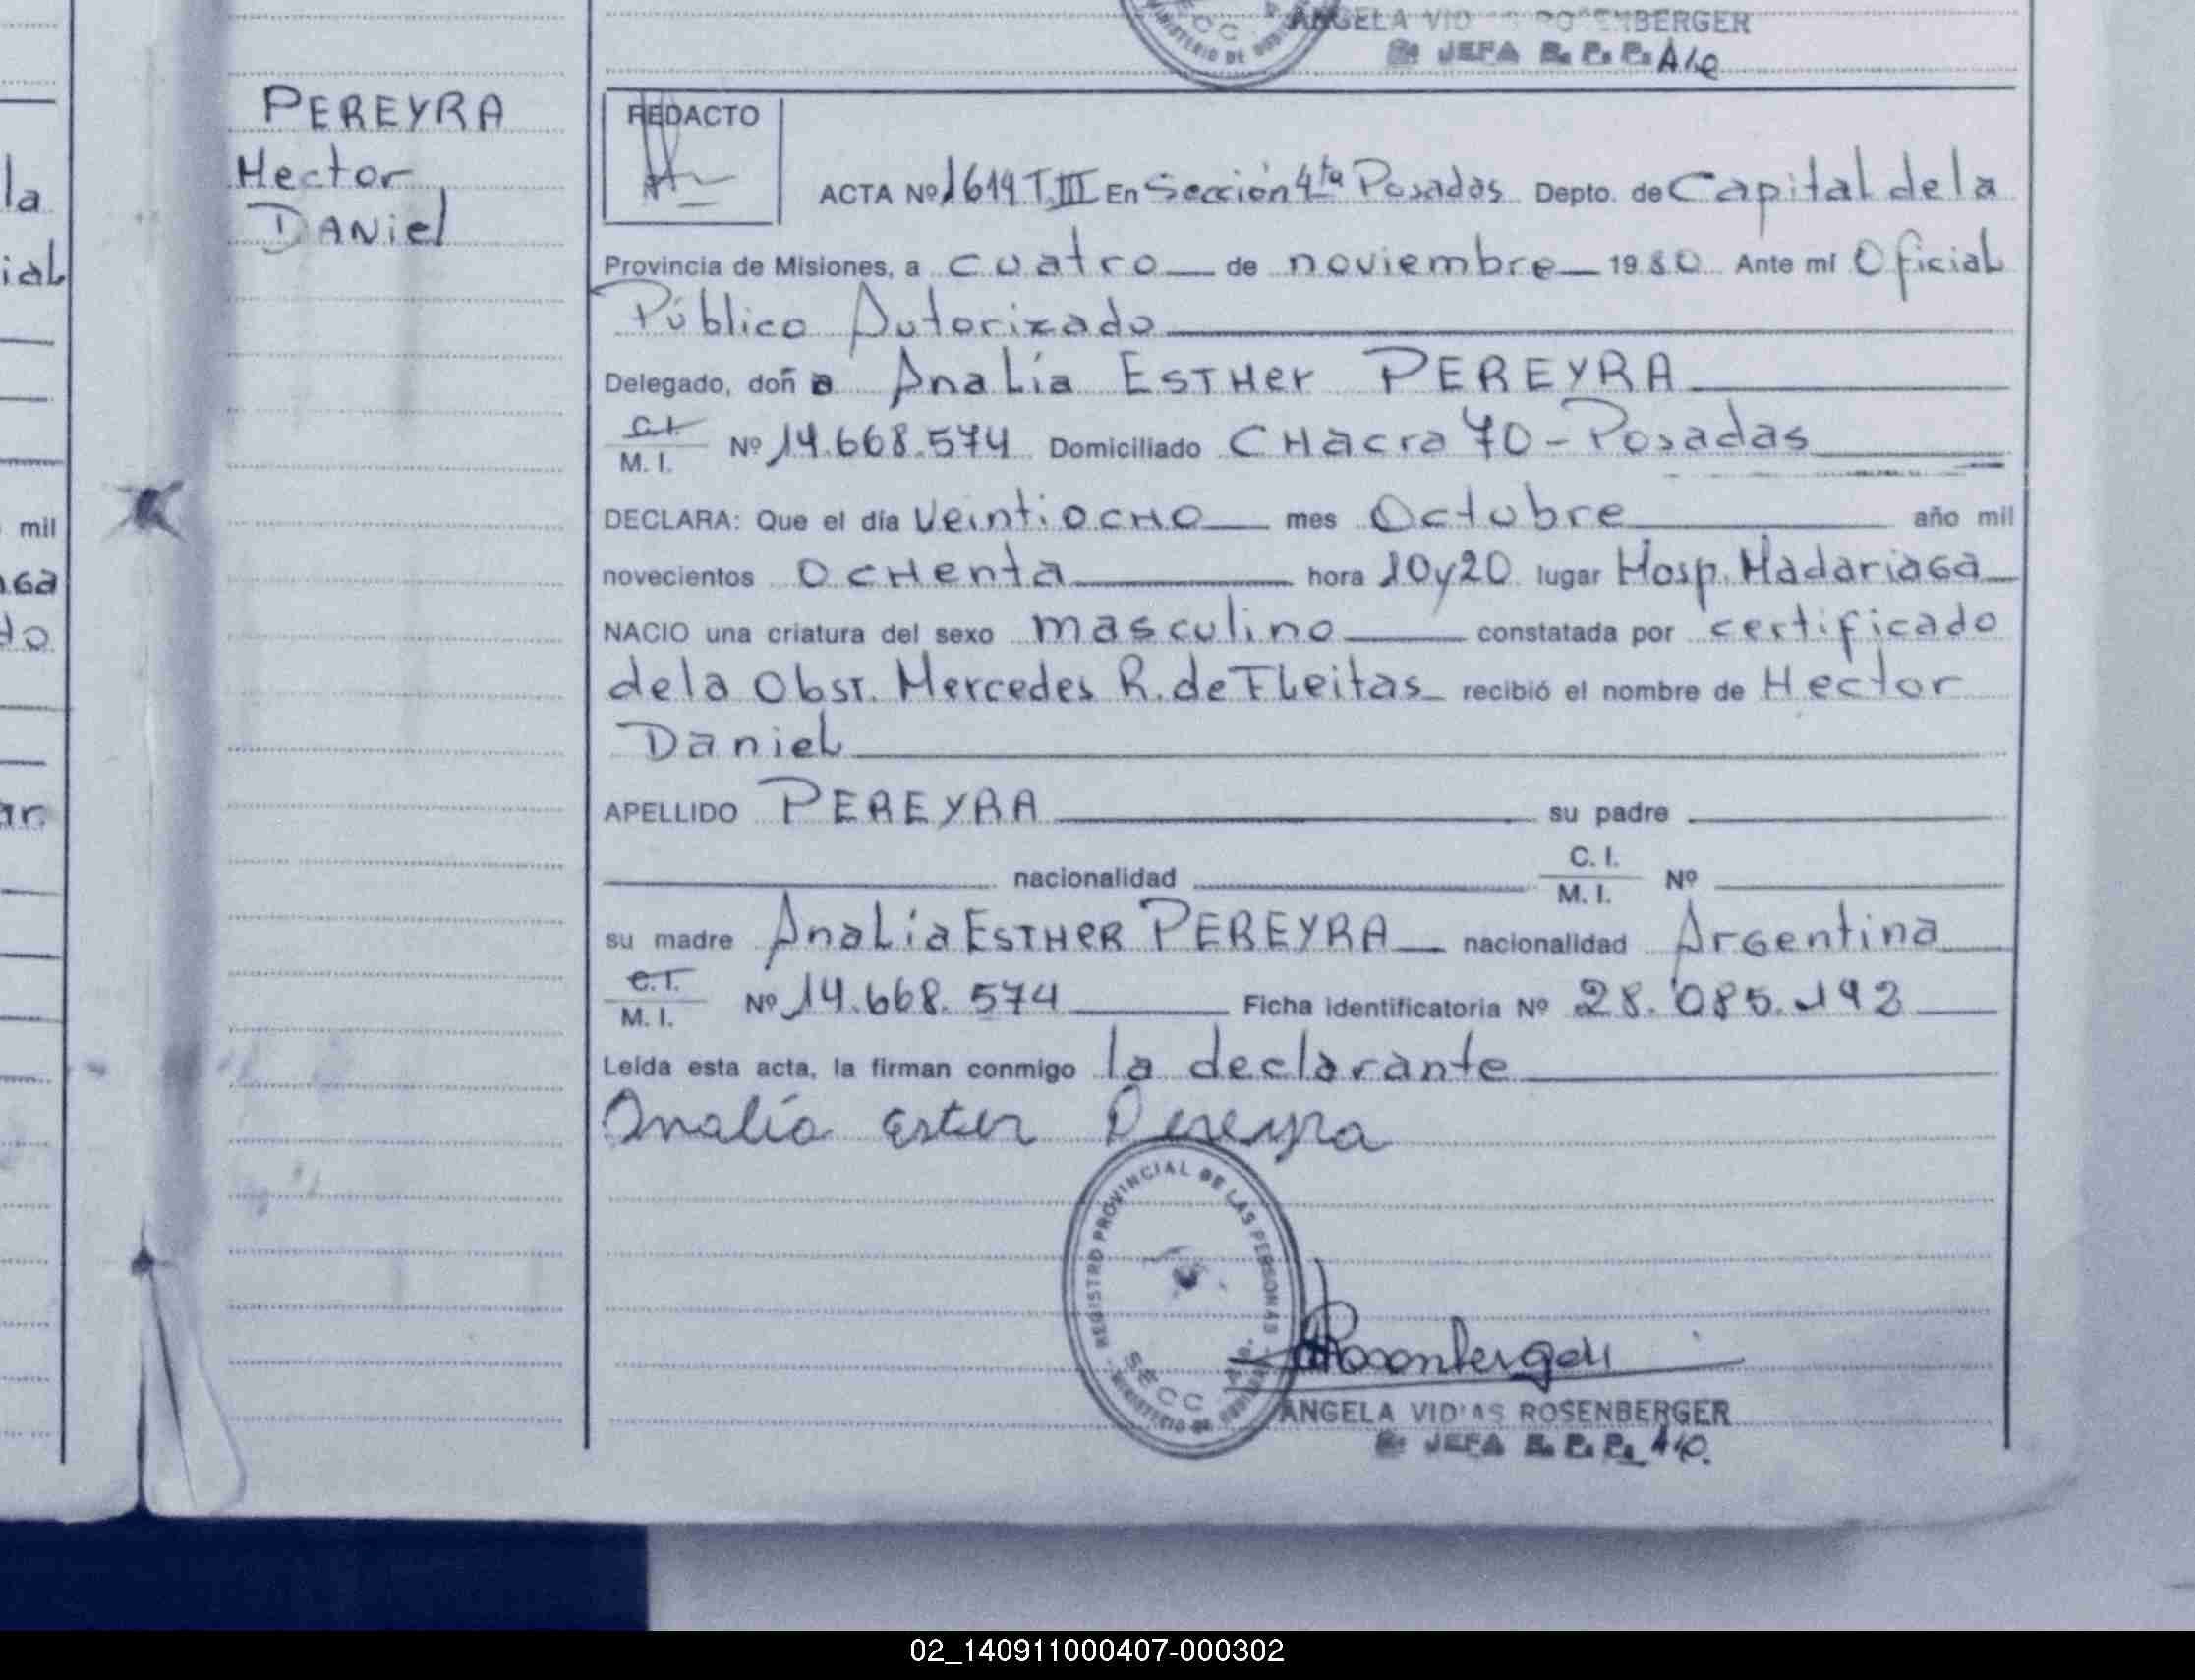 ANGELA VID ROSENBERGER
JEFA R. P. P. A/c
PEREYRA
Hector
DANiel
la
ial
mil
do
ar.
REDACTO
ACTA Nº 1619 T.III En Sección 4ta Posadas Depto. de Capital de la
Provincia de Misiones, a cuatro de noviembre 1980 Ante mí Oficial
Público Autorizado
Delegado, doña Analía ESTHer PEREYRA
C.I.
M. I. Nº 14.668.574 Domiciliado CHacra 70 - Posadas
DECLARA: Que el día VeintiocHo mes Octubre año mil
novecientos OcHenta hora 10y20 lugar Hosp. Madariaga
NACIO una criatura del sexo masculino constatada por certificado
de la Obst. Mercedes R. de FLeitas recibió el nombre de Hector
Daniel
APELLIDO PEREYRA su padre
nacionalidad C. I.
M. I. Nº
su madre Analía ESTHER PEREYRA nacionalidad Argentina
C.I.
M. I. Nº 14.668.574 Ficha identificatoria Nº 28.085.192
Leída esta acta, la firman conmigo la declarante
Analía Ester Pereyra
REGISTRO PROVINCIAL DE LAS PERSONAS
SECC 4ta.
MINISTERIO DE GOBIERNO
Rosenberger
ANGELA VIDAS ROSENBERGER
JEFA R. P. P. A/c.
02_140911000407-000302